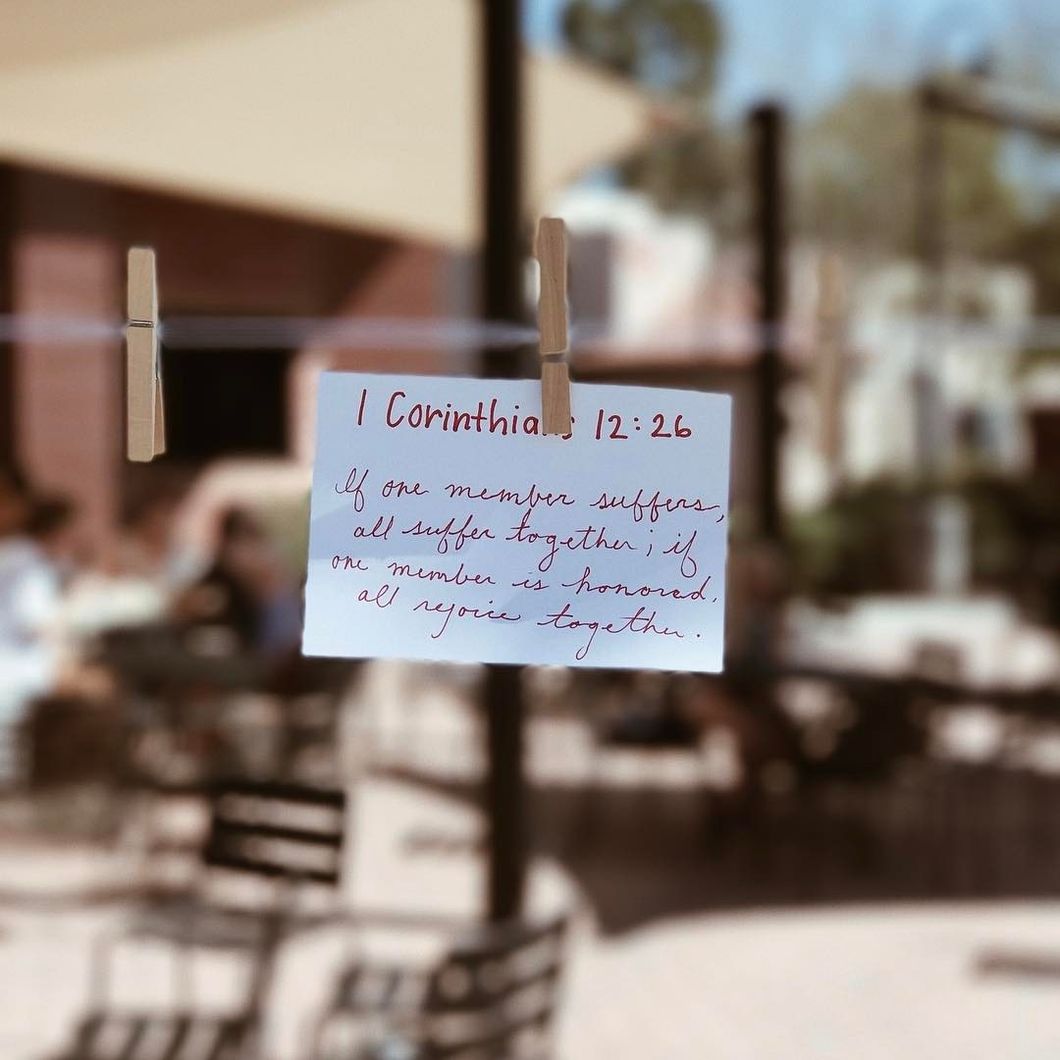 1 Corinthians 12:26
If one member suffers,
all suffer together; if
one member is honored,
all rejoice together.